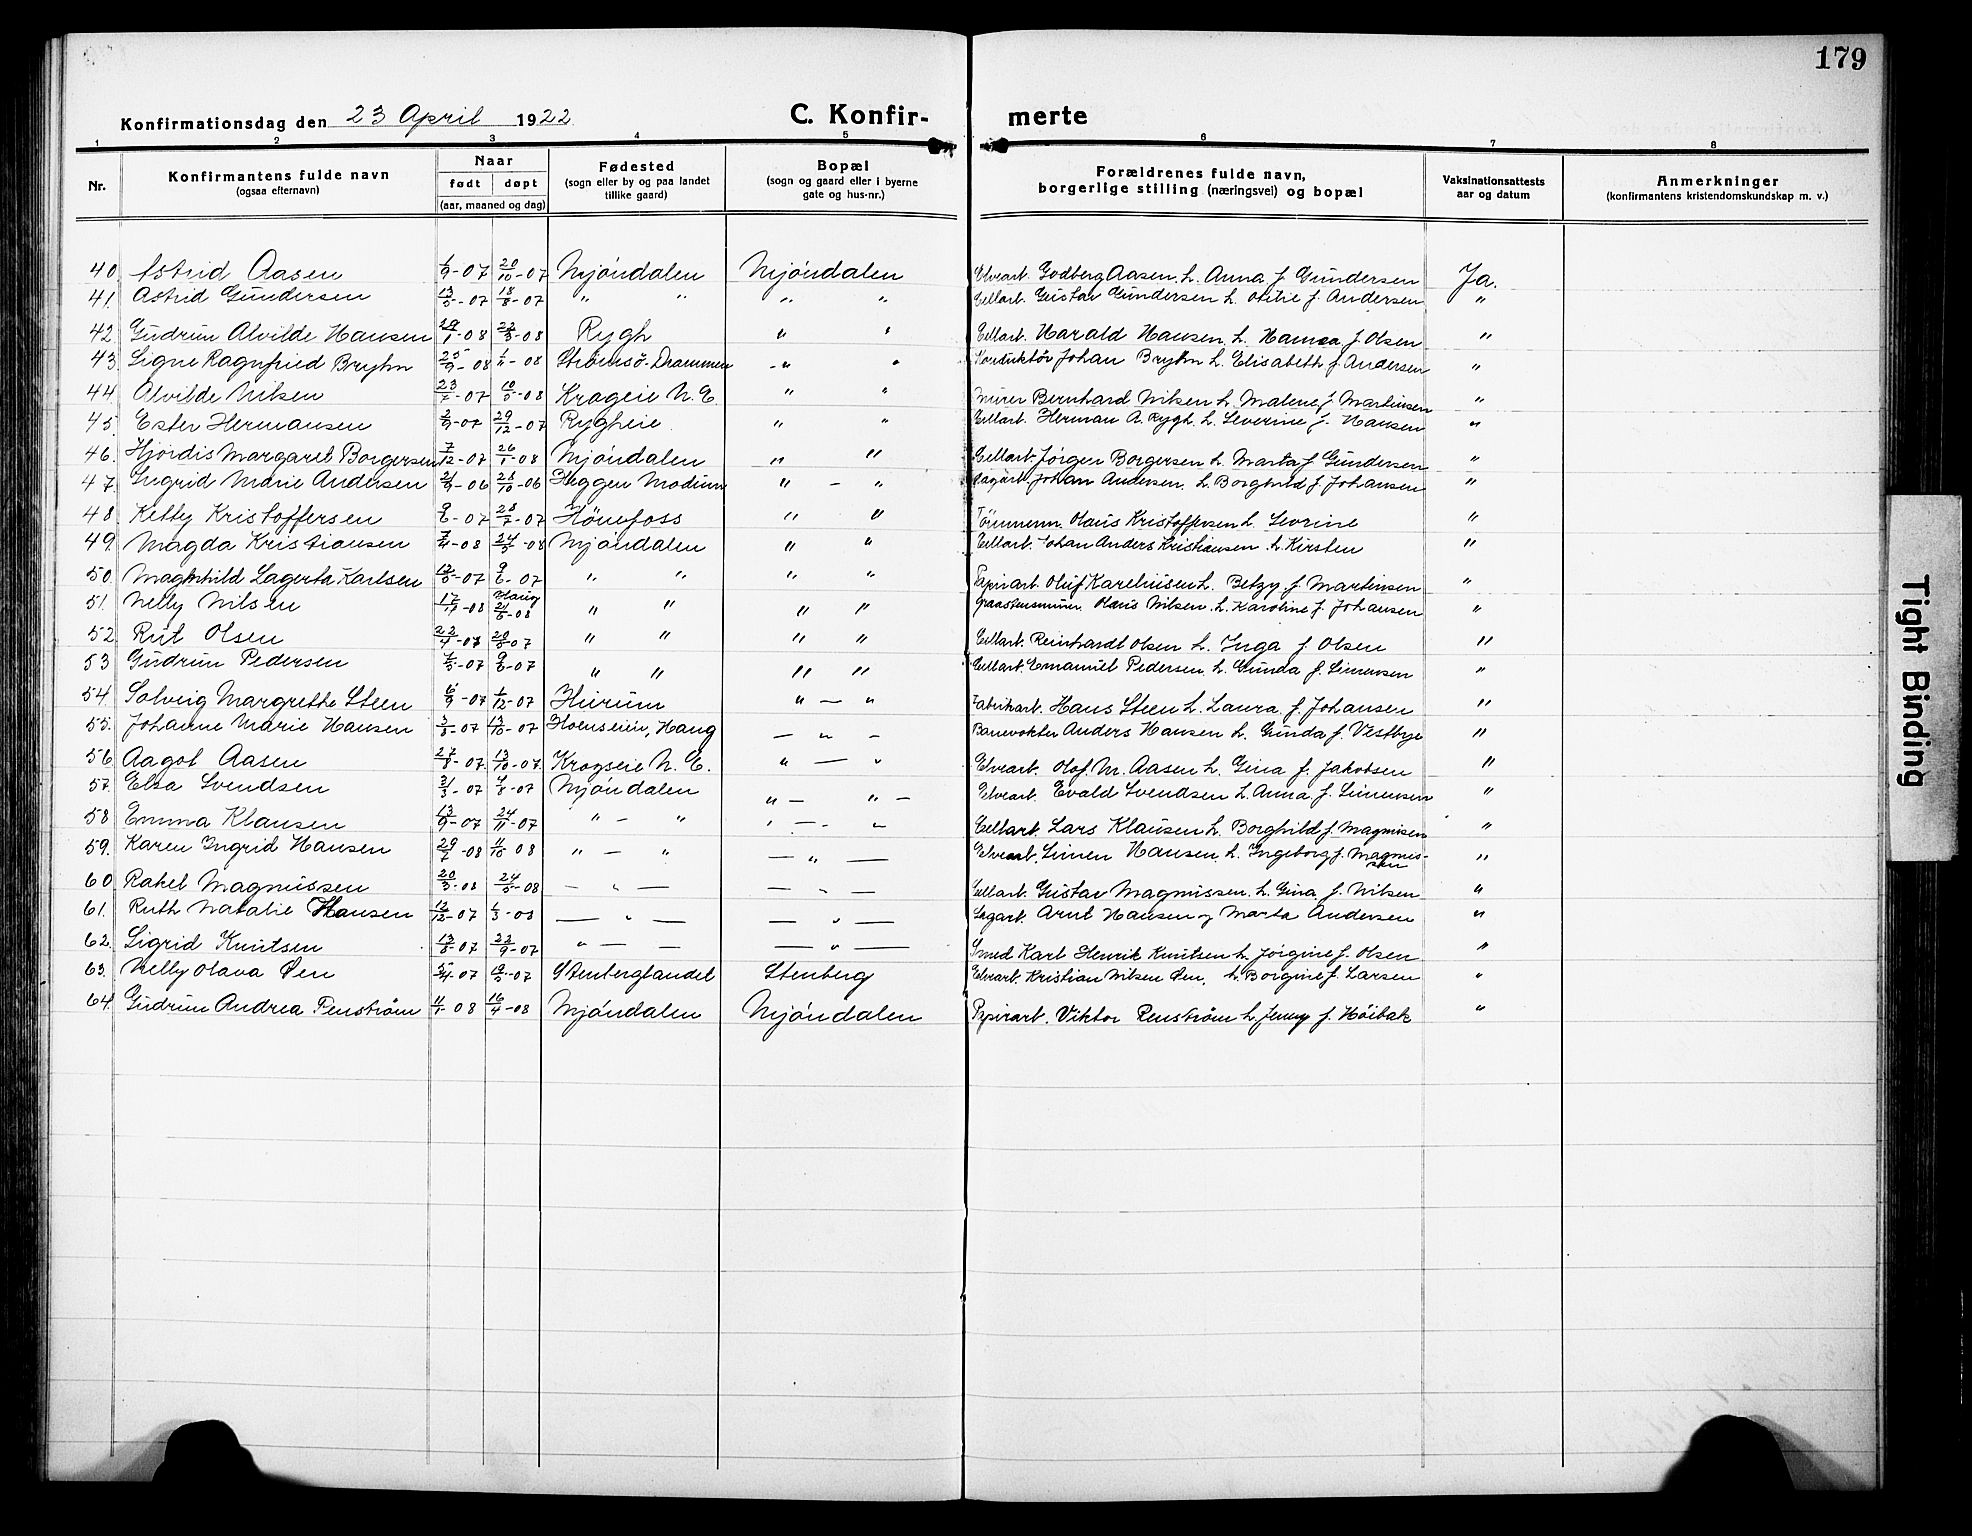 179
Konfirmationsdag den 23 April 1922
C. Konfir- merte
1 2 3 4 5 6 7 8
Nr. Konfirmantens fulde navn (ogsaa efternavn) Naar født døpt (aar, maaned og dag) Fødested (sogn eller by og paa landet tillike gaard) Bopæl (sogn og gaard eller i byerne gate og hus-nr.) Forældrenes fulde navn, borgerlige stilling (næringsvei) og bopæl Vaksinationsattests aar og datum Anmerkninger (konfirmantens kristendomskundskap m. v.)
40. Astrid Aasen 1/9-07 20/10-07 Mjöndalen Mjöndalen Elvearb. Godberg Aasen h. Anna f Gundersen Ja.
41. Astrid Gundersen 13/5-07 18/8-07 " " " " Cellarb. Gustav Gundersen h. Otilie f Andersen "
42. Gudrun Alvilde Hansen 29/1-08 22/3-08 Rygh " " Cellarb. Harald Hansen h. Hanna f Olsen "
43. Signe Ragnfried Brythn -08 -08 Strömsö-Drammen " " Konduktör Johan Brythn h. Elisabeth f. Andersen "
44 Alvilde Nilsen 23/7-07 10/5-08 Krogeie N. E. " " Murer Bernhard Nilsen h. Malene f Martinsen "
45. Ester Hermansen 2/9-07 29/12-07 Rygheie " " Cellarb. Herman A. Rygh h. Severine f. Hansen "
46. Hjördis Margaret Borgersen 7/12-07 26/1-08 Mjöndalen " " Cellarb. Jörgen Borgersen h. Marta f Gundersen "
47. Ingrid Marie Andersen -06 28/10-06 Heggen Modum " - " Sagarb. Johan Andersen h. Borghild f Johansen "
48. Ketty Kristoffersen 9/6-07 28/7-07 Hönefoss " " Tömmerm. Olaus Kristoffersen h. Sevrine "
49. Magda Kristiansen 7/4-08 24/5-08 Mjöndalen " " Cellarb. Johan Anders Kristiansen h. Kirsten "
50. Maghhild Lagerta Karlsen 12/5-07 9/6-07 " " " " Papirarb. Oluf Kareliusen h. Betzy f Martinsen "
51. Nelly Nilsen -08 Haug 21/6-08 " " " " Graastensmurer Olaus Nilsen h. Karoline f. Johansen "
52 Rut Olsen 22/4-07 20/5-07 " " " " Cellarb. Reinhardt Olsen h. Inga f Olsen "
53 Gudrun Pedersen 1/5-07 9/6-07 " " " " Cellarb. Emanuel Pedersen h. Gunda f. Simensen "
54. Solveig Margrethe Steen 6/9-07 1/12-07 Hurum " — " Fabrikarb. Hans Steen h. Laura f. Johansen "
55. Johanne Marie Hansen 3/8-07 13/10-07 Hoenseien, Haug — " — Banevokter Anders Hansen h. Gunda f. Vestbye "
56 Aagot Aasen 27/8-07. 13/10-07. Krogseie N. E. " — " Elvearb. Olof. M. Aasen h. Gina f. Jakobsen "
57. Elsa Svendsen 31/3-07 4/8-07 Mjöndalen " — " — Elvearb. Evald Svendsen h. Anna f. Simensen "
58 Emma Klausen 13/9-07 24/11-07 " — " " — " Cellarb. Lars Klausen h. Borghild f. Magnusen "
59. Karen Ingrid Hansen 29/7-08 11/10 08 " — " — " — Elvearb. Simen Hansen h. Ingeborg f. Magnus-
sen "
60 Rakel Magnussen 20/3-08 24/5-08 — " — — " — Cellarb. Gustav Magnussen h. Gina f. Nilsen "
61. Ruth Natalie Hansen 12/12-07 1/3-08 — " — — " — Sagarb. Arnt Hansen og Marta Andersen "
62. Sigrid Knutsen 13/8-07 22/9-07 " — — — " — Smed Karl Henrik Knutsen h. Jörgine f. Olsen "
63. Nelly Olava Øen -07 -07 Stenberglandet Stenberg Elvearb. Kristian Nilsen Øen, h. Borgine f. Larsen "
64. Gudrun Andrea Penström 11/1 08 16/4-08 Mjöndalen Mjöndalen Papirarb. Viktor Penström h. Jenny f. Höibak "
Tight Binding